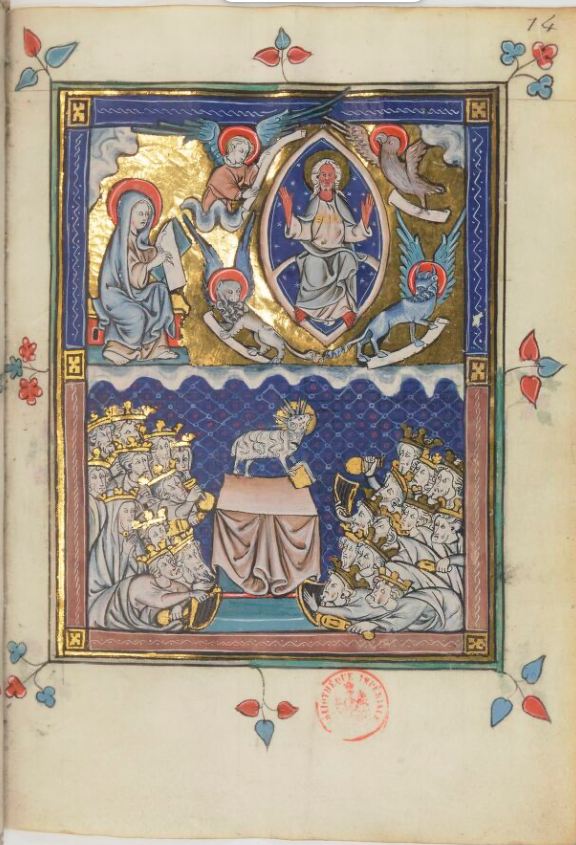 14
BIBLIOTHÈQUE IMPÉRIALE